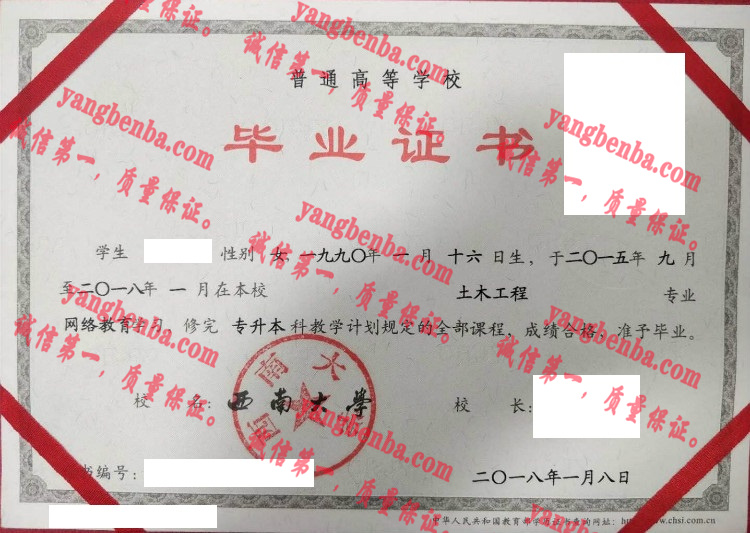 普通高等学校
毕业证书
学生 性别 女, 一九九〇年 一 月 十六 日生, 于二〇一五年 九 月
至二〇一八年 一 月在本校 土木工程 专业
网络教育学习, 修完 专升本 科教学计划规定的全部课程, 成绩合格, 准予毕业。
校 名: 西南大学 校 长:
书编号: 二〇一八年一月八日
中华人民共和国教育部学历证书查询网址: http://www.chsi.com.cn
西南大
yangbenba.com
诚信第一,质量保证。
yangbenba.com
诚信第一,质量保证。
yangbenba.com
诚信第一,质量保证。
yangbenba.com
诚信第一,质量保证。
yangbenba.com
诚信第一,质量保证。
yangbenba.com
诚信第一,质量保证。
yangbenba.com
诚信第一,质量保证。
yangbenba.com
诚信第一,质量保证。
yangbenba.com
诚信第一